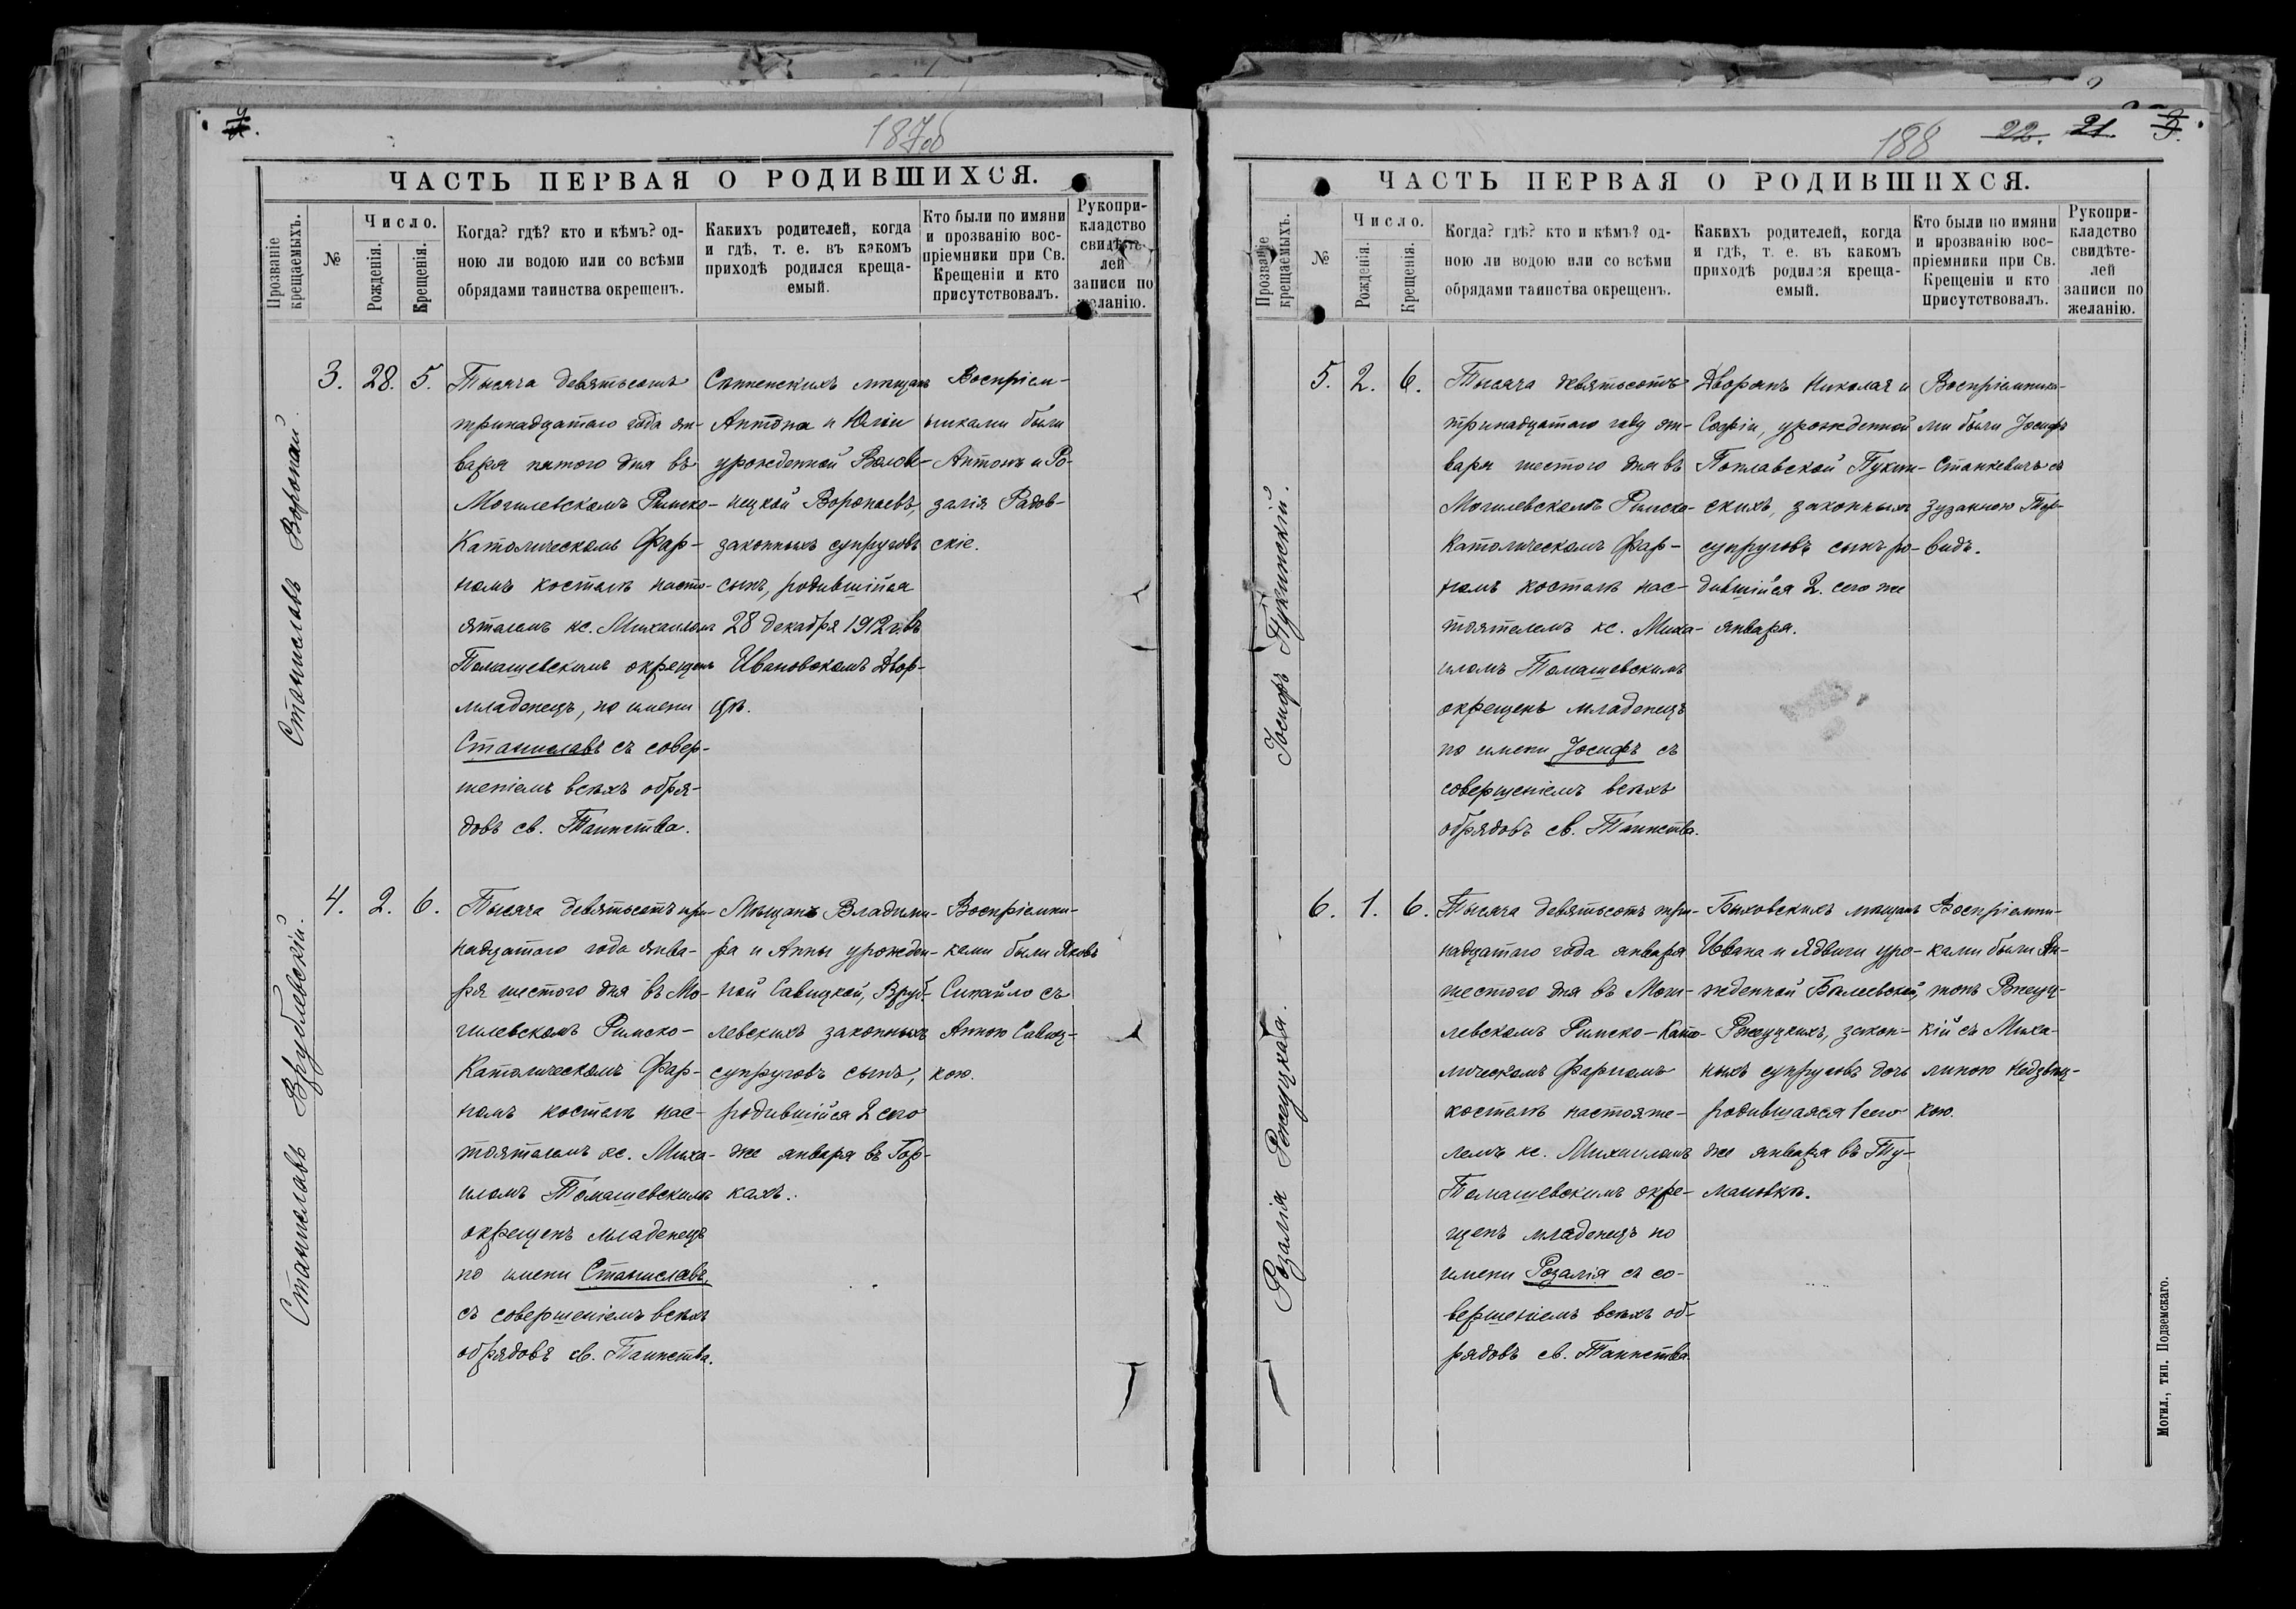 187об
ЧАСТЬ ПЕРВАЯ О РОДИВШИХСЯ.
Прозваніе крещаемыхъ.
№
Число.
Рожденія.
Крещенія.
Когда? гдѣ? кто и кѣмъ? од-
ною ли водою или со всѣми
обрядами таинства окрещенъ.
Какихъ родителей, когда
и гдѣ, т. е. въ какомъ
приходѣ родился креща-
емый.
Кто были по имяни
и прозванію вос-
пріемники при Св.
Крещеніи и кто
присутствовалъ.
Рукопри-
кладство
свидѣте-
лей
записи по
желанію.
Станиславъ Воропай.
3.
28.
5.
Тысяча девятьсотъ
тринадцатаго года ян-
варя пятого дня въ
Могилевскомъ Римско-
Католическомъ Фар-
номъ костелѣ насто-
ятелемъ кс. Михаиломъ
Томашевскимъ окрещенъ
младенецъ, по имени
Станиславъ съ совер-
шеніемъ всѣхъ обря-
довъ св. Таинства.
мѣщанъ
Антона и Юліи
урожденной
Воропаевъ,
законныхъ супруговъ
сынъ, родившійся
28 декабря 1912 г. въ
Ивановскомъ Двор-
цѣ.
Воспріем-
никами были
Антонъ и Ро-
залія Радов-
скіе.
Станиславъ Врублевскій.
4.
2.
6.
Тысяча девятьсотъ три-
надцатаго года янва-
ря шестого дня въ Мо-
гилевскомъ Римско-
Католическомъ Фар-
номъ костелѣ нас-
тоятелемъ кс. Миха-
иломъ Томашевскимъ
окрещенъ младенецъ
по имени Станиславъ,
съ совершеніемъ всѣхъ
обрядовъ св. Таинства.
Мѣщанъ Владими-
ра и Анны урожден-
ной Савицкой, Вруб-
левскихъ законныхъ
супруговъ сынъ,
родившійся 2 сего
же января въ Гор-
кахъ.
Воспріемни-
ками были Яковъ
Сикайло съ
Анною Савиц-
кою.
188
22.
21.
ЧАСТЬ ПЕРВАЯ О РОДИВШИХСЯ.
Прозваніе крещаемыхъ.
№
Число.
Рожденія.
Крещенія.
Когда? гдѣ? кто и кѣмъ? од-
ною ли водою или со всѣми
обрядами таинства окрещенъ.
Какихъ родителей, когда
и гдѣ, т. е. въ какомъ
приходѣ родился креща-
емый.
Кто были по имяни
и прозванію вос-
пріемники при Св.
Крещеніи и кто
присутствовалъ.
Рукопри-
кладство
свидѣте-
лей
записи по
желанію.
Іосифъ Пукинскій.
5.
2.
6.
Тысяча девятьсотъ
тринадцатаго году ян-
варя шестого дня въ
Могилевскомъ Римско-
Католическомъ Фар-
номъ костелѣ нас-
тоятелемъ кс. Миха-
иломъ Томашевскимъ
окрещенъ младенецъ
по имени Іосифъ съ
совершеніемъ всѣхъ
обрядовъ св. Таинства.
Дворянъ Николая и
Софіи, урожденной
Поплавской Пукин-
скихъ, законныхъ
супруговъ сынъ ро-
дившійся 2. сего же
января.
Воспріемника-
ми были Іосифъ
Станкевичъ съ
Зузанною Тор-
видъ.
Розалія Ржеуцкая.
6.
1.
6.
Тысяча девятьсотъ три-
надцатаго года января
шестого дня въ Моги-
левскомъ Римско-Като-
лическомъ Фарномъ
костелѣ настояте-
лемъ кс. Михаиломъ
Томашевскимъ окре-
щенъ младенецъ по
имени Розалія съ со-
вершеніемъ всѣхъ об-
рядовъ св. Таинства.
Быховскихъ мѣщанъ
Ивана и Ядвиги уро-
жденной
Ржеуцкихъ, закон-
ныхъ супруговъ дочь
родившаяся 1 сего
же января въ Ту-
мановкѣ.
Воспріемни-
ками были Ан-
тонъ Ржеуц-
кій съ Миха-
линою Недзвѣц-
кою.
Могил., тип. Подземскаго.